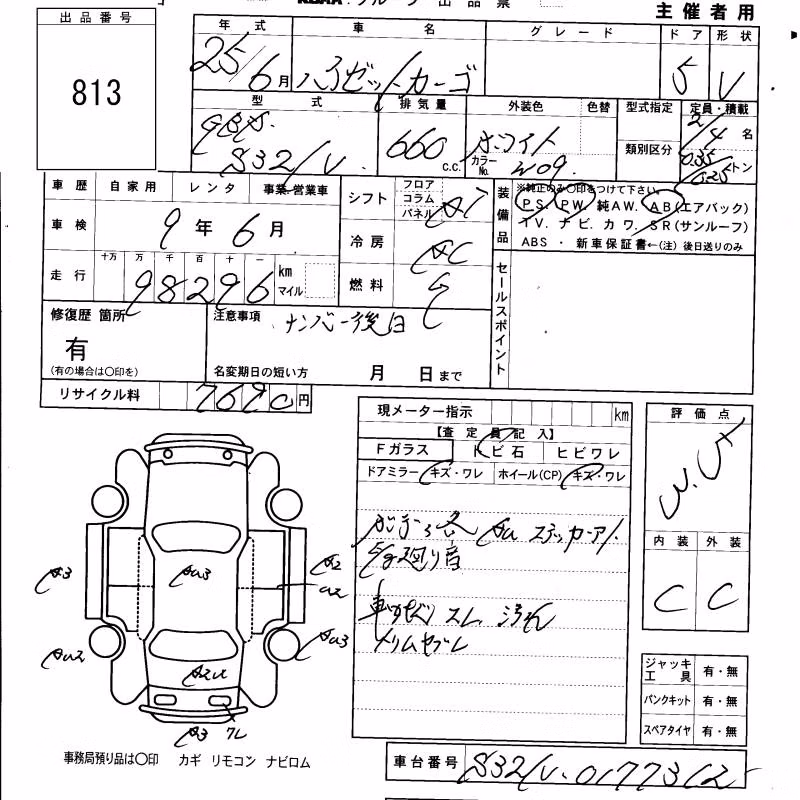 出品票
主催者用
出品番号
813
年式 車名 グレード ドア 形状
25/6月 ハイゼットカーゴ 5 V
型式 排気量 外装色 色替 型式指定 定員・積載
S321V 660 c.c. ホワイト カラーNo. W09 類別区分 2/4名
0.35/0.25トン
車歴 自家用 レンタ 事業・営業車
車検 9年6月
走行 十万 万 千 百 十 一
98296 km マイル
シフト フロア コラム パネル AT
冷房 AC
燃料 G
装備品 ※純正のみ〇印をつけて下さい。
PS. PW. 純AW. AB(エアバック)
TV. ナビ. カワ. SR(サンルーフ)
ABS ・ 新車保証書←(注) 後日送りのみ
セールスポイント
修復歴 箇所
有
(有の場合は〇印を)
注意事項 ナンバー後日
名変期日の短い方 月 日まで
リサイクル料 7690円
現メーター指示 km
【査定員記入】
Fガラス トビ石 ヒビワレ
ドアミラー キズ・ワレ ホイール(CP) キズ・ワレ
ステッカーア
Eg廻り音
スレ 汚れ
評価点
内装 外装
C C
A3 AU3 A2
U2
AU2 AU3
A2U
A3 ワレ
ジャッキ 工具 有・無
パンクキット 有・無
スペアタイヤ 有・無
事務局預り品は〇印 カギ リモコン ナビロム
車台番号 S321V-0177312